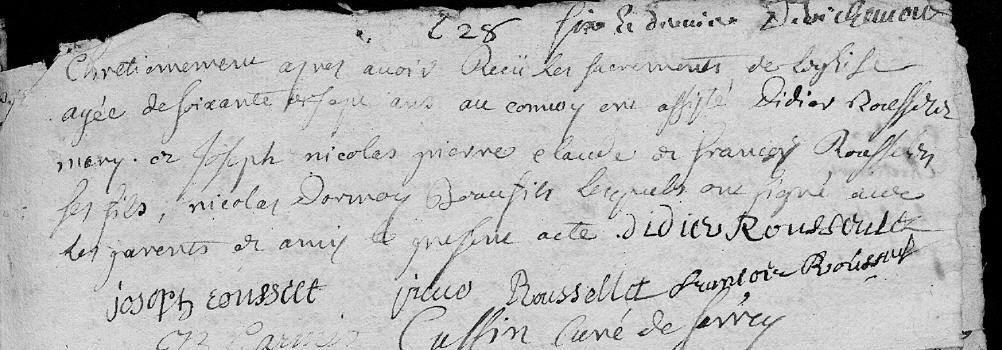 C28 six le dernier
Chretiennement apres avoir Recü les sacrements de leglise
agée de soixante et sept ans au convoy ont assisté Didier Rousselet
mary. et Joseph nicolas pierre claude et francoy Rousselet
ses fils, nicolas Dormoy Beaufils lesquels ont signé avec
les parents et amis le present acte. didier Rousselet
joseph rousselet Rousselet francois Rousselet
Cussin Curé de Serrey